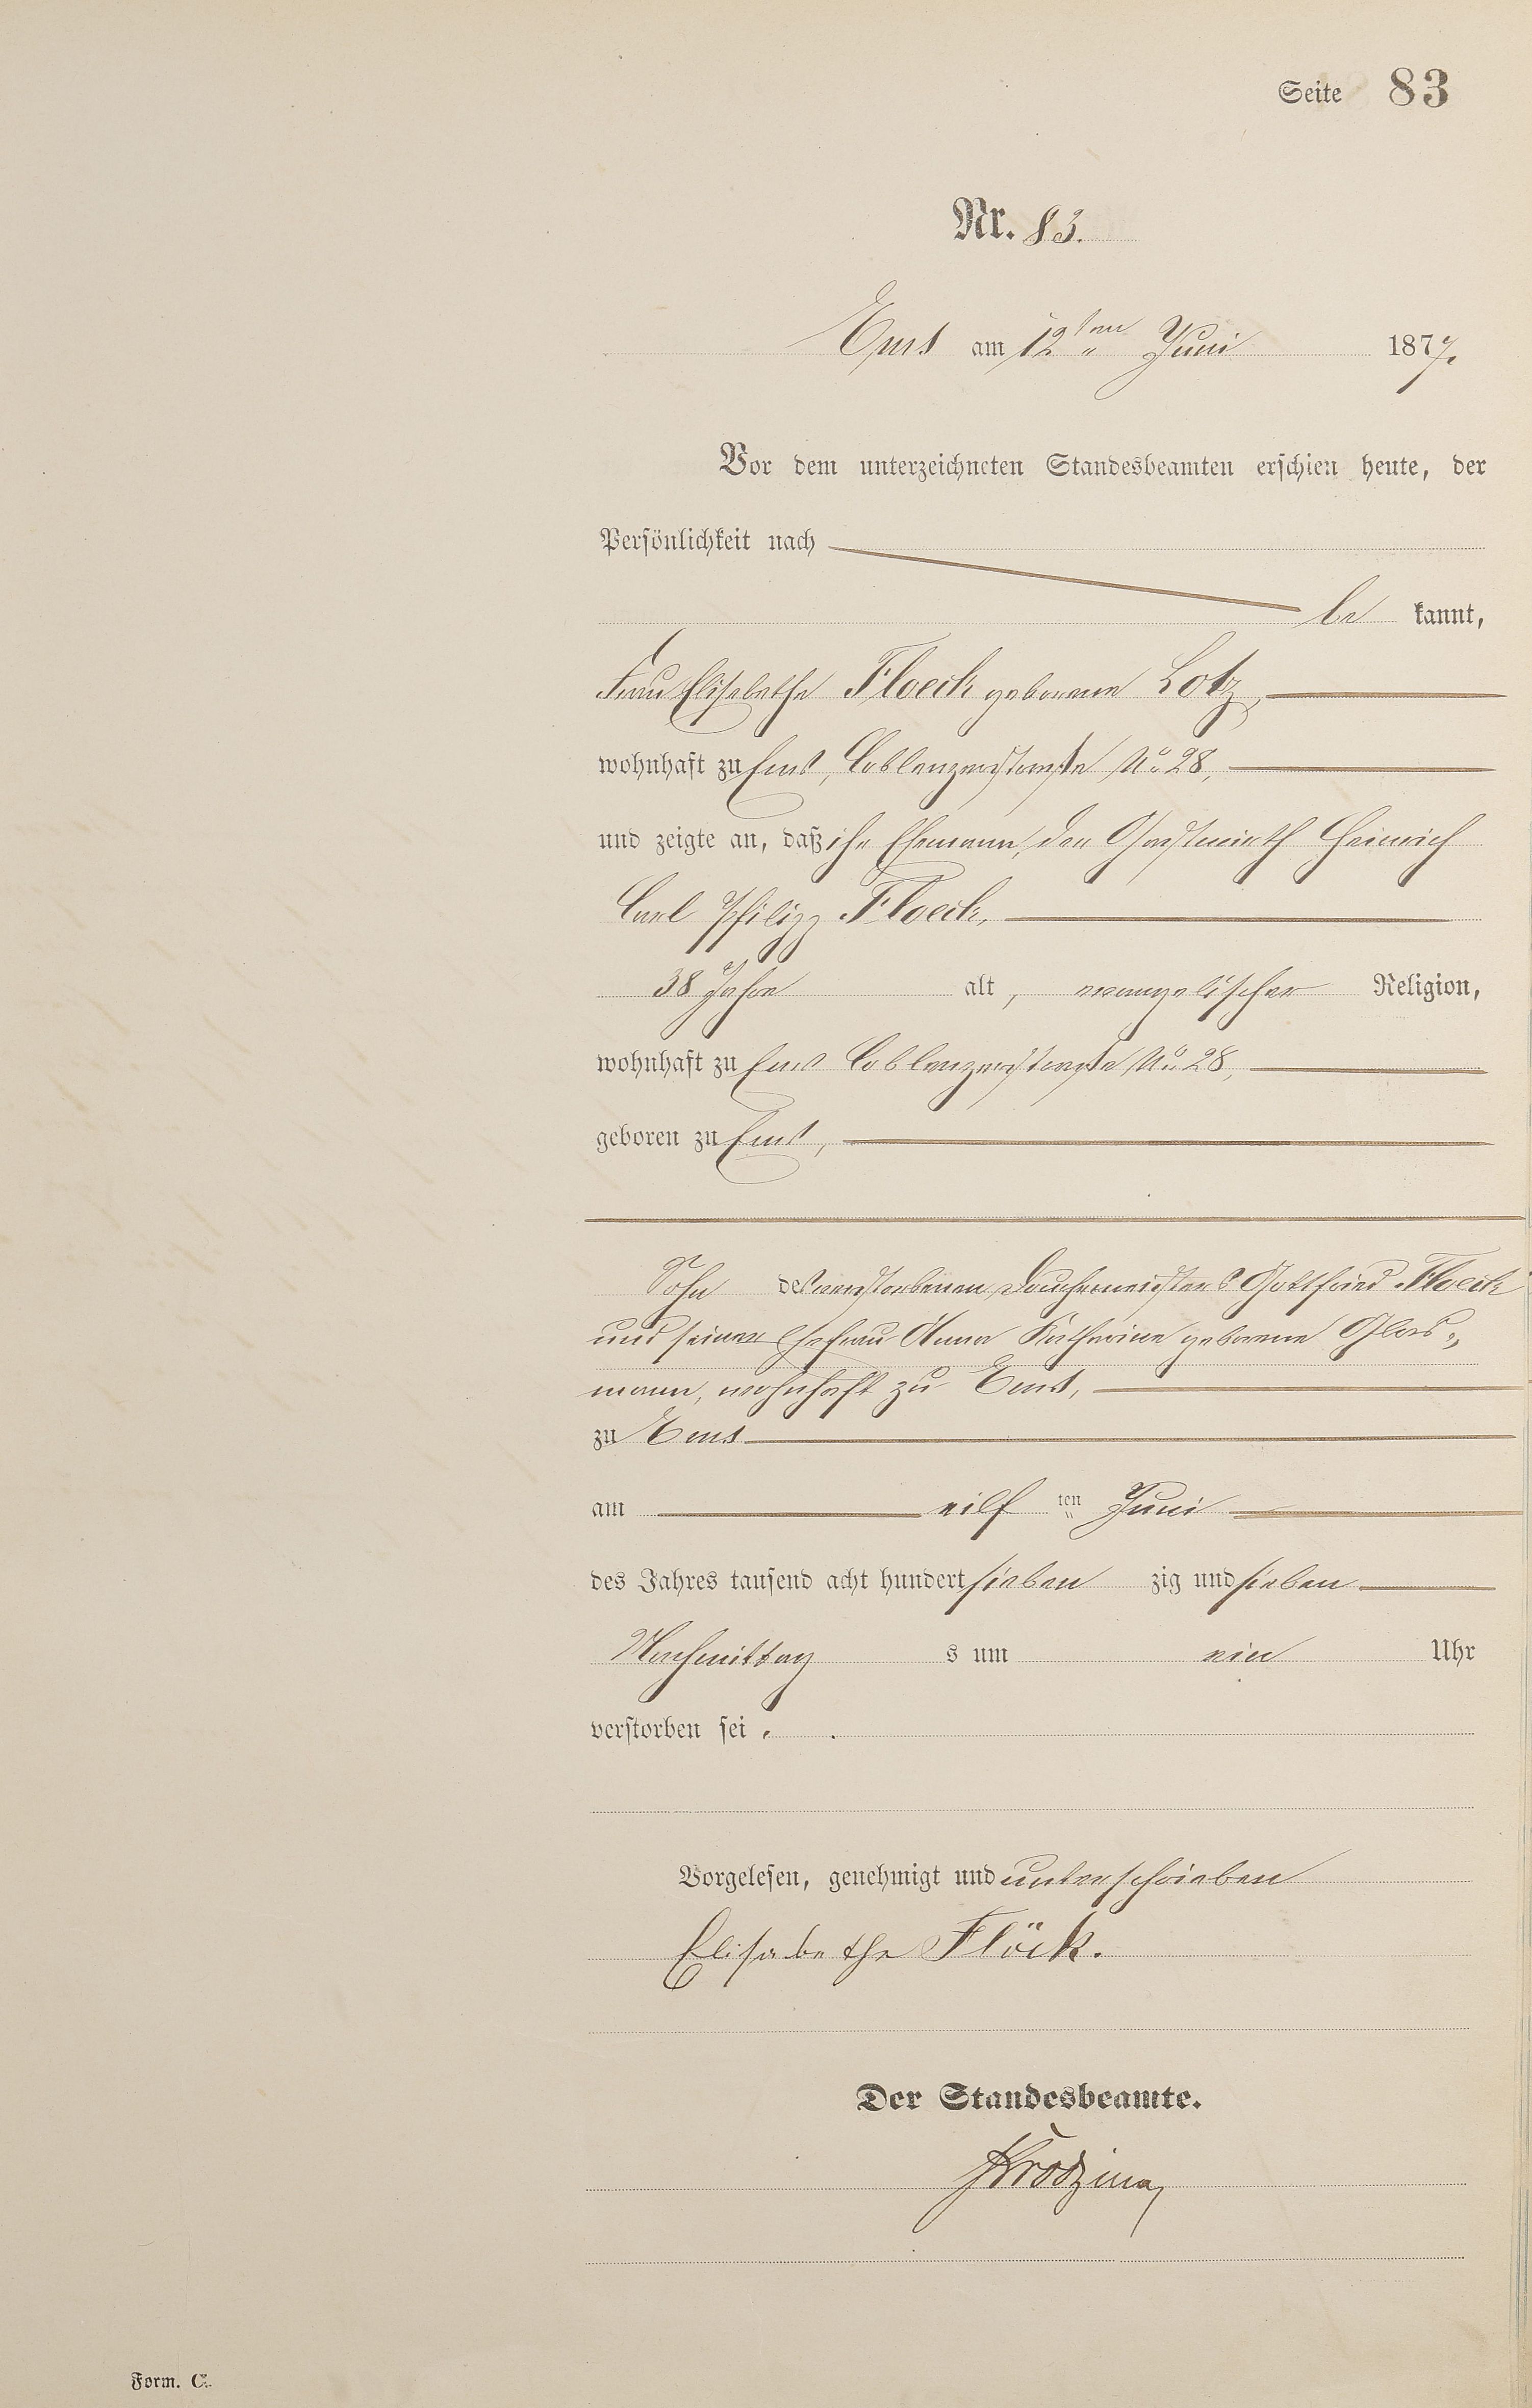 Seite 83
Nr. 83.
Ems am 12ten Juni 1877.
Vor dem unterzeichneten Standesbeamten erschien heute, der
Persönlichkeit nach
be kannt,
Frau Elisabethe Floeck geborene Lotz,
wohnhaft zu Ems, Coblenzerstraße No 28,
und zeigte an, daß ihr Ehemann, der Gastwirth Heinrich
Carl Philipp Floeck,
38 Jahre alt, evangelischer Religion,
wohnhaft zu Ems Coblenzerstraße No 28,
geboren zu Ems,
Sohn des verstorbenen Douchemeisters Gottfried Floeck
und seiner Ehefrau Anna Katharine geborene Glas„
mann, wohnhaft zu Ems,
zu Ems
am eilf ten Juni
des Jahres tausend acht hundert sieben zig und sieben
Nachmittag s um ein Uhr
verstorben sei.
Vorgelesen, genehmigt und unterschrieben
Elisabethe Flöck.
Der Standesbeamte.
Form. C.